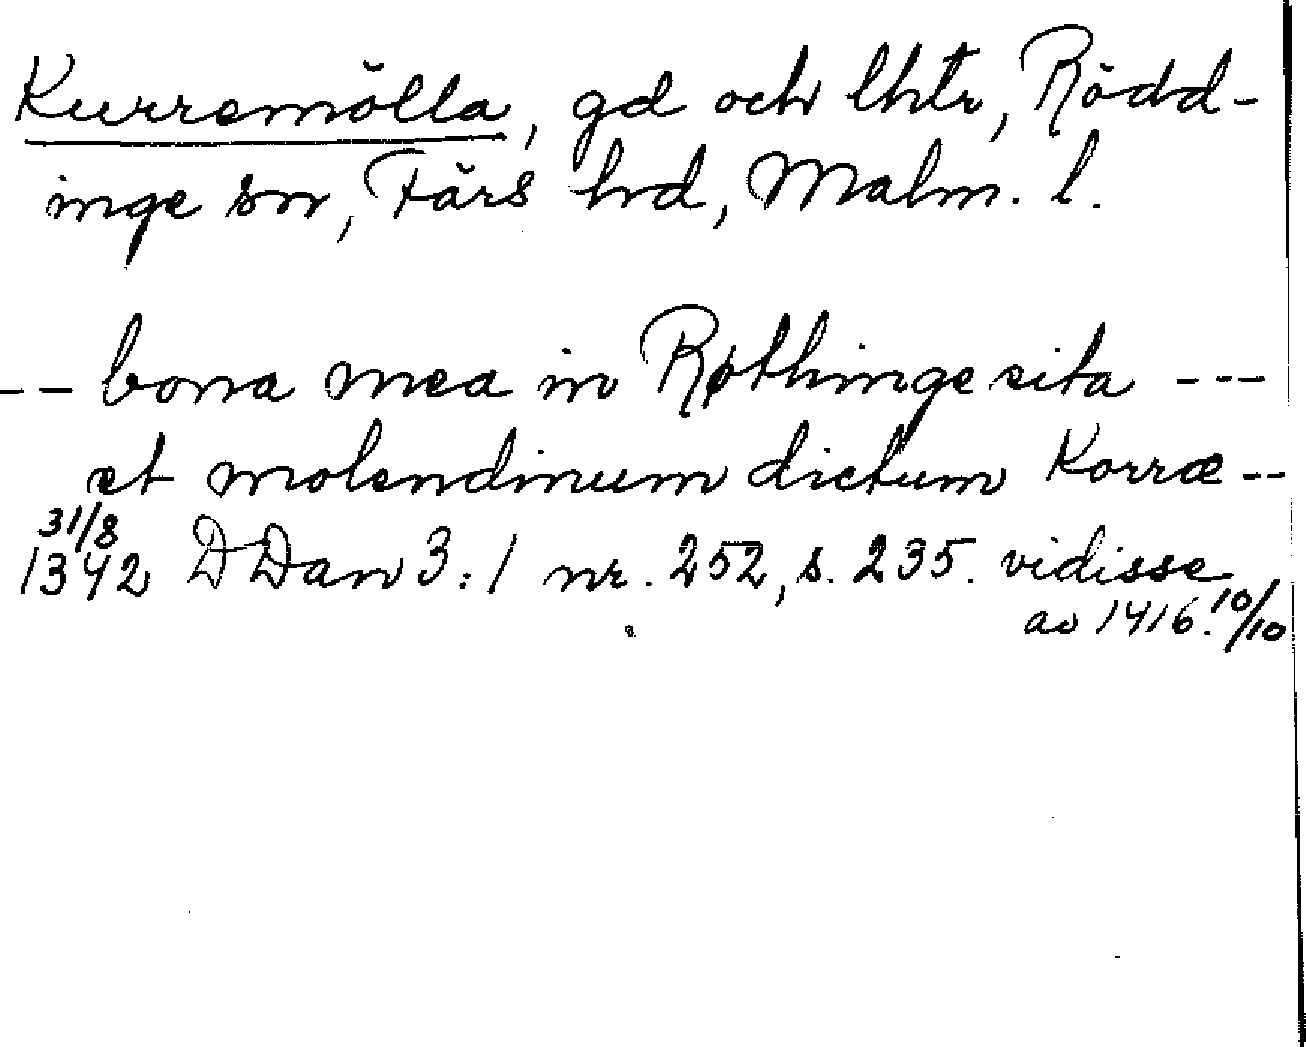 Kurremölla, gd och lhtr, Rödd-
inge sn, Färs hd, Malm. l.
-- bona mea in Røthinge sita ---
et molendinum dictum Korræ --
31/8
1342 DDan 3:1 nr. 252, s. 235. vidisse
av 1416.10/10